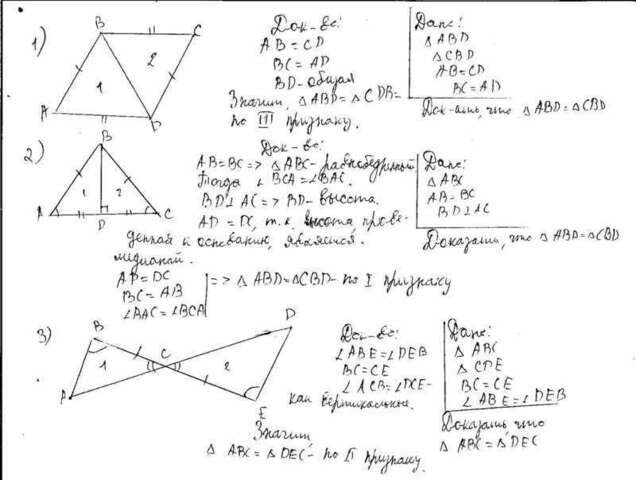 1)
B
C
2
1
A
D
Док-во:
AB=CD
BC=AD
BD-общая
Значит, △ABD=△CDB-
по III признаку.
Дано:
△ABD
△CBD
AB=CD
BC=AD
Док-ать, что △ABD=△CBD
2)
B
1
2
A
D
C
Док-во:
AB=BC=> △ABC-равнобедренный
Тогда ∠BCA=∠BAC.
BD⊥AC=> BD-высота.
AD=DC, т.к. высота, прове-
денная к основанию, является.
медианой.
AD=DC
BC=AB
∠BAC=∠BCA
=> △ABD=△CBD-по I признаку
Дано:
△ABC
AB=BC
BD⊥AC
Доказать, что △ABD=△CBD
3)
B
D
C
1
2
A
E
Док-во:
∠ABE=∠DEB
BC=CE
∠ACB=∠DCE-
как вертикальные.
Значит,
△ABC=△DEC-по II признаку.
Дано:
△ABC
△CDE
BC=CE
∠ABE=∠DEB
Доказать что
△ABC=△DEC